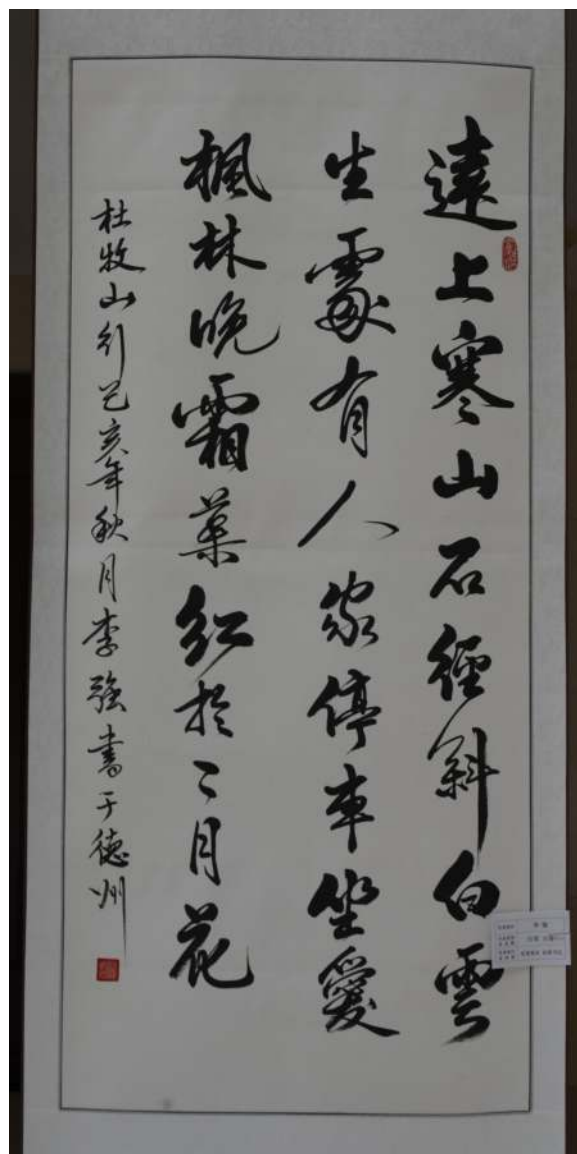 遠上寒山石徑斜白雲
生處有人家停車坐愛
楓林晚霜葉紅於二月花
杜牧山行己亥年秋月李強書于德州